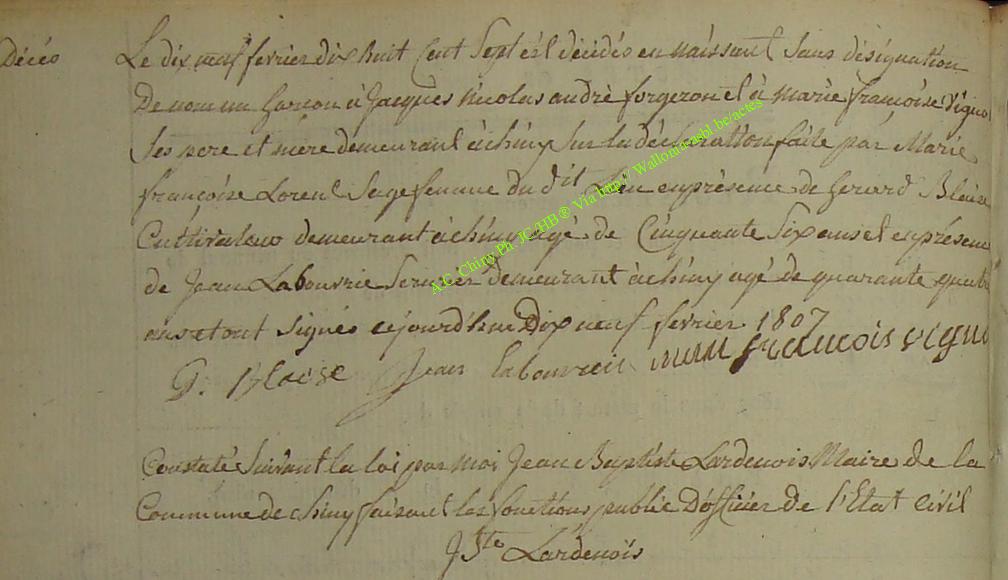 Décés
Le dix neuf fevrier dix huit Cent Sept est décédés en naissant Sans désignation
De nom un Garson à Jacques Nicolas andré forgeron et à marie francoise vigno
Ses pere et mère demeurant à chiny Sur la déclaration faite par Marie
francoise Lorent Sagefemme du dit Lieu en présence de Gerard Blaise
Cultivateur demeurant à chiny agé de Cinquante Six ans et en présence
de Jean Labouvrie demeurant à chiny agé de quarante quatre
ans et ont Signés cejourd'hui Dix neuf fevrier 1807
G. Blaise Jean labouvrie francois vigno
Constaté Suivant la loi par moi Jean Baptiste Lardenois Maire de la
Commune de chiny faisant les fonctions public D'officier de l'Etat Civil
J Bte Lardenois
A.C. Chiny Ph JC-HB® Via http/ Wallonia-asbl.be/actes